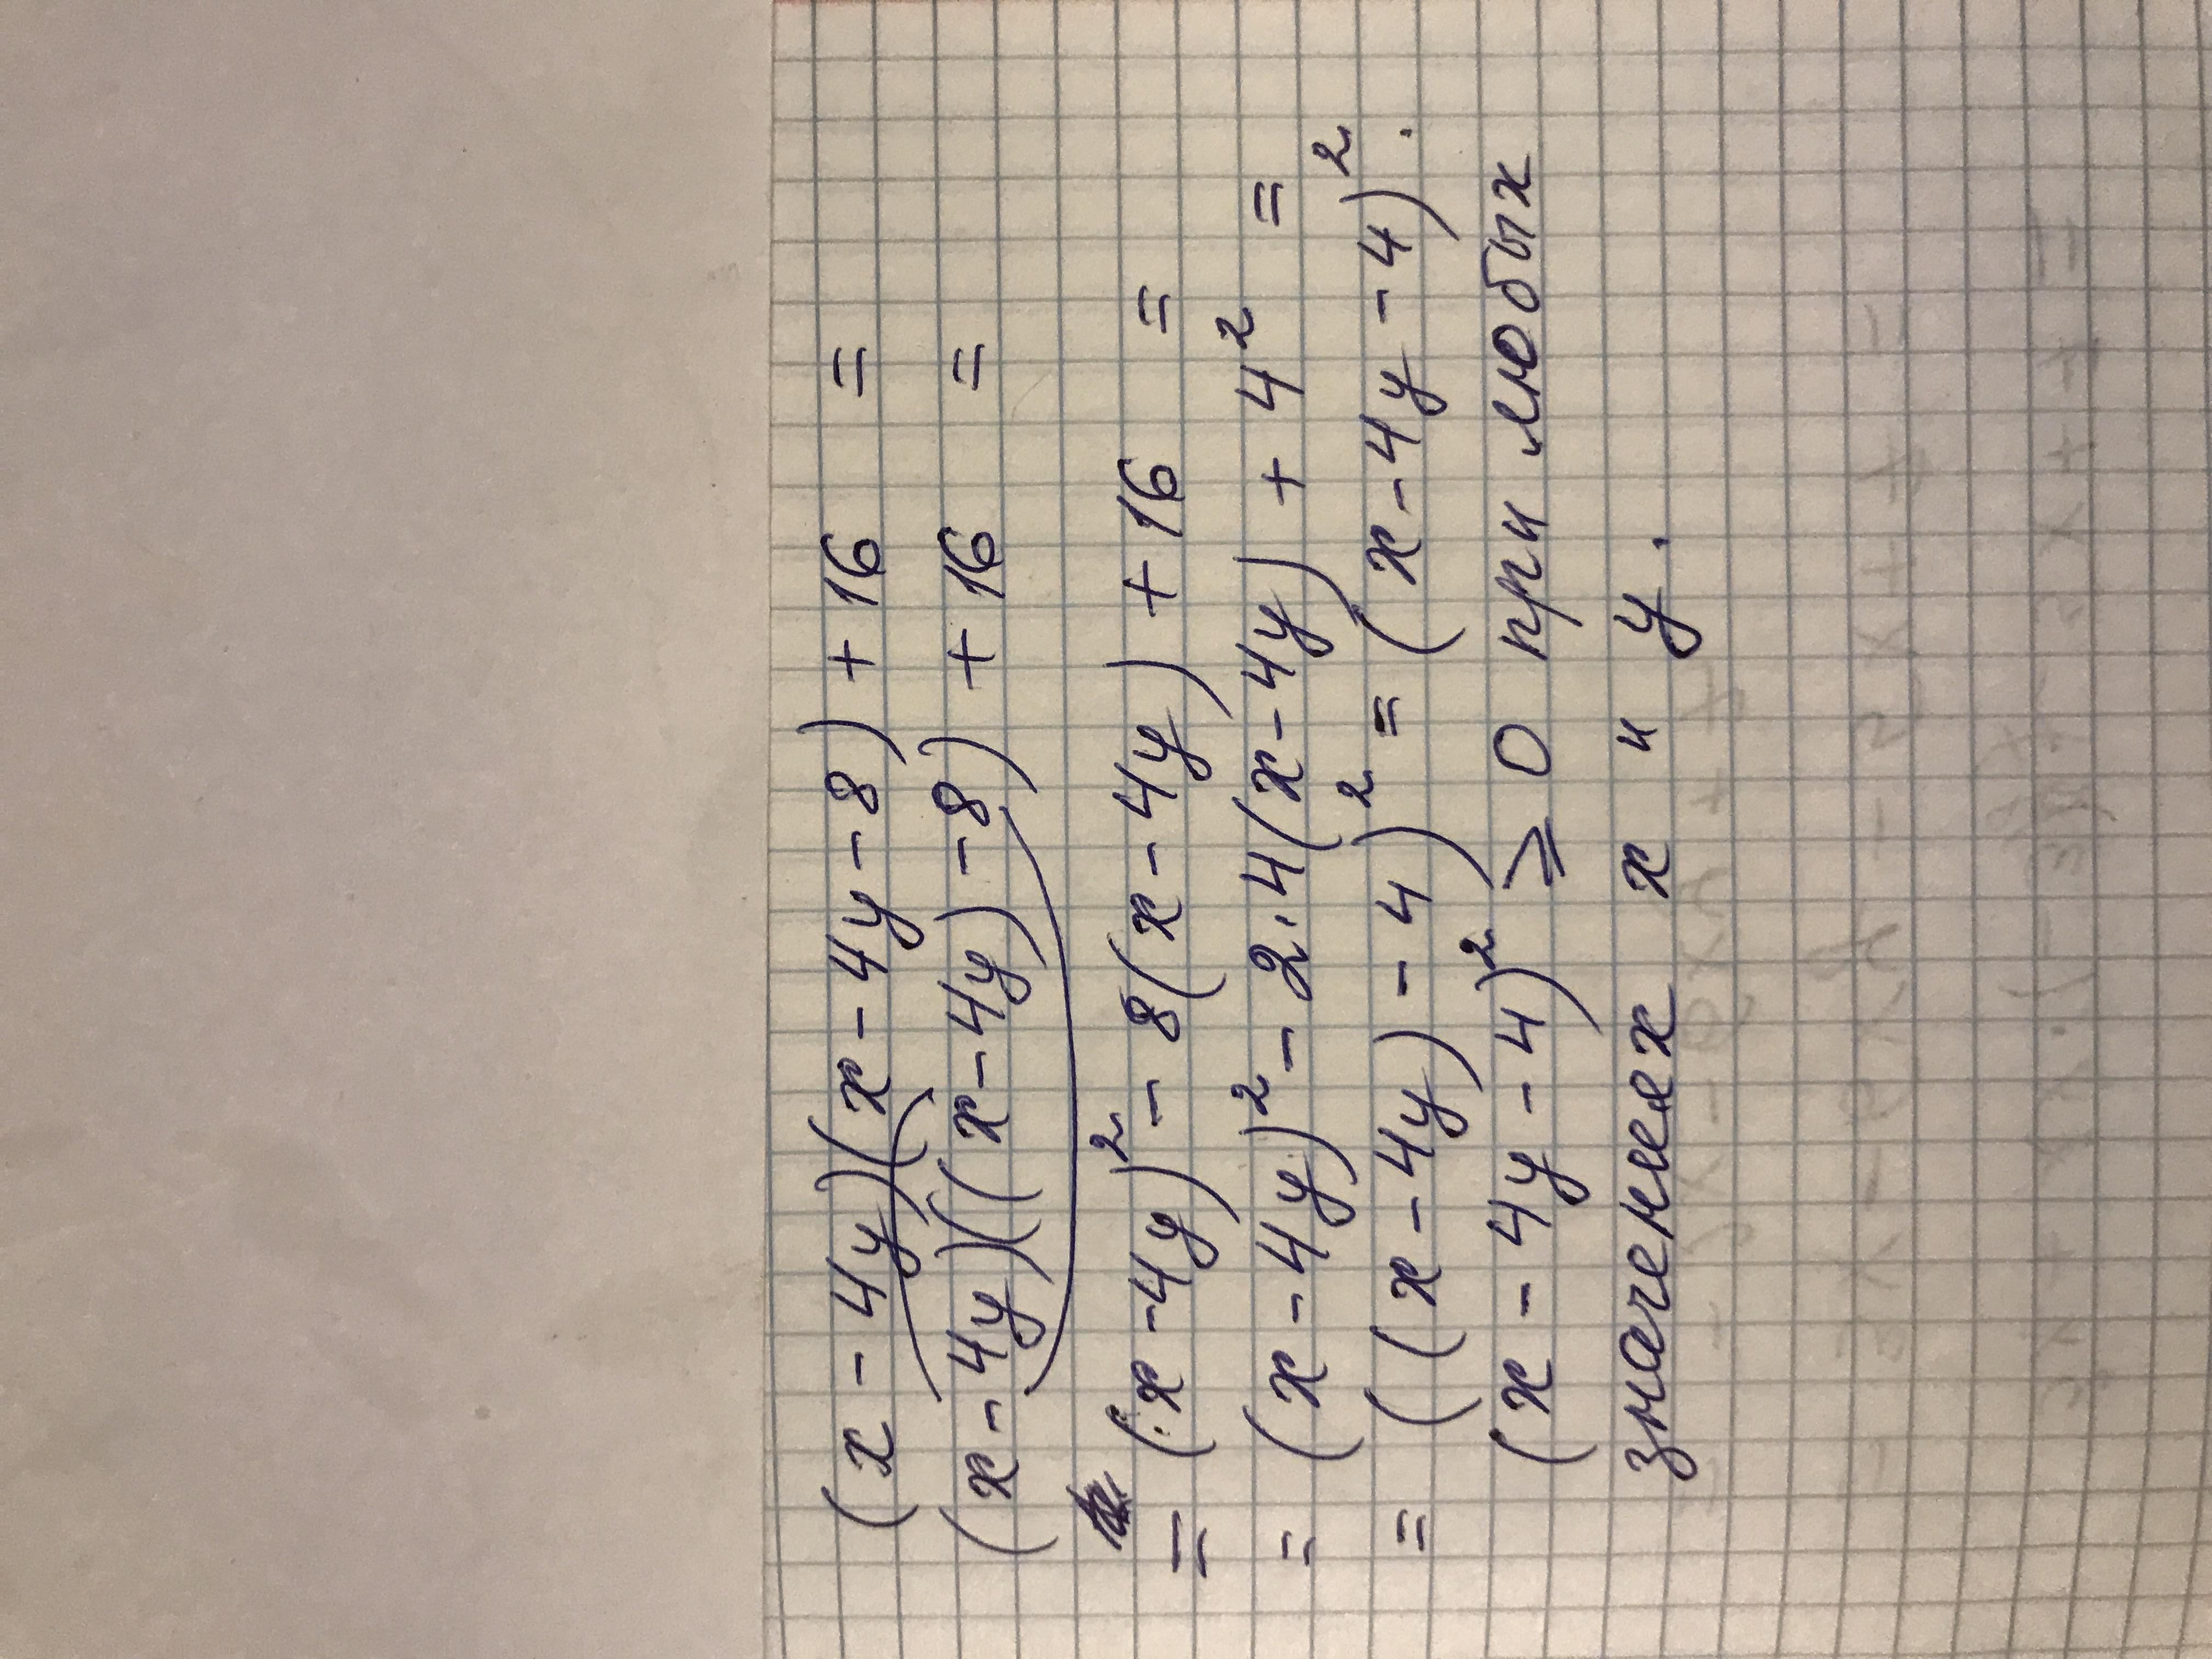 (x - 4y)(x - 4y - 8) + 16 =
(x - 4y)((x - 4y) - 8) + 16 =
= (x - 4y)² - 8(x - 4y) + 16 =
= (x - 4y)² - 2·4(x - 4y) + 4² =
= ((x - 4y) - 4)² = (x - 4y - 4)².
(x - 4y - 4)² ⩾ 0 при любых
значениях x и y.